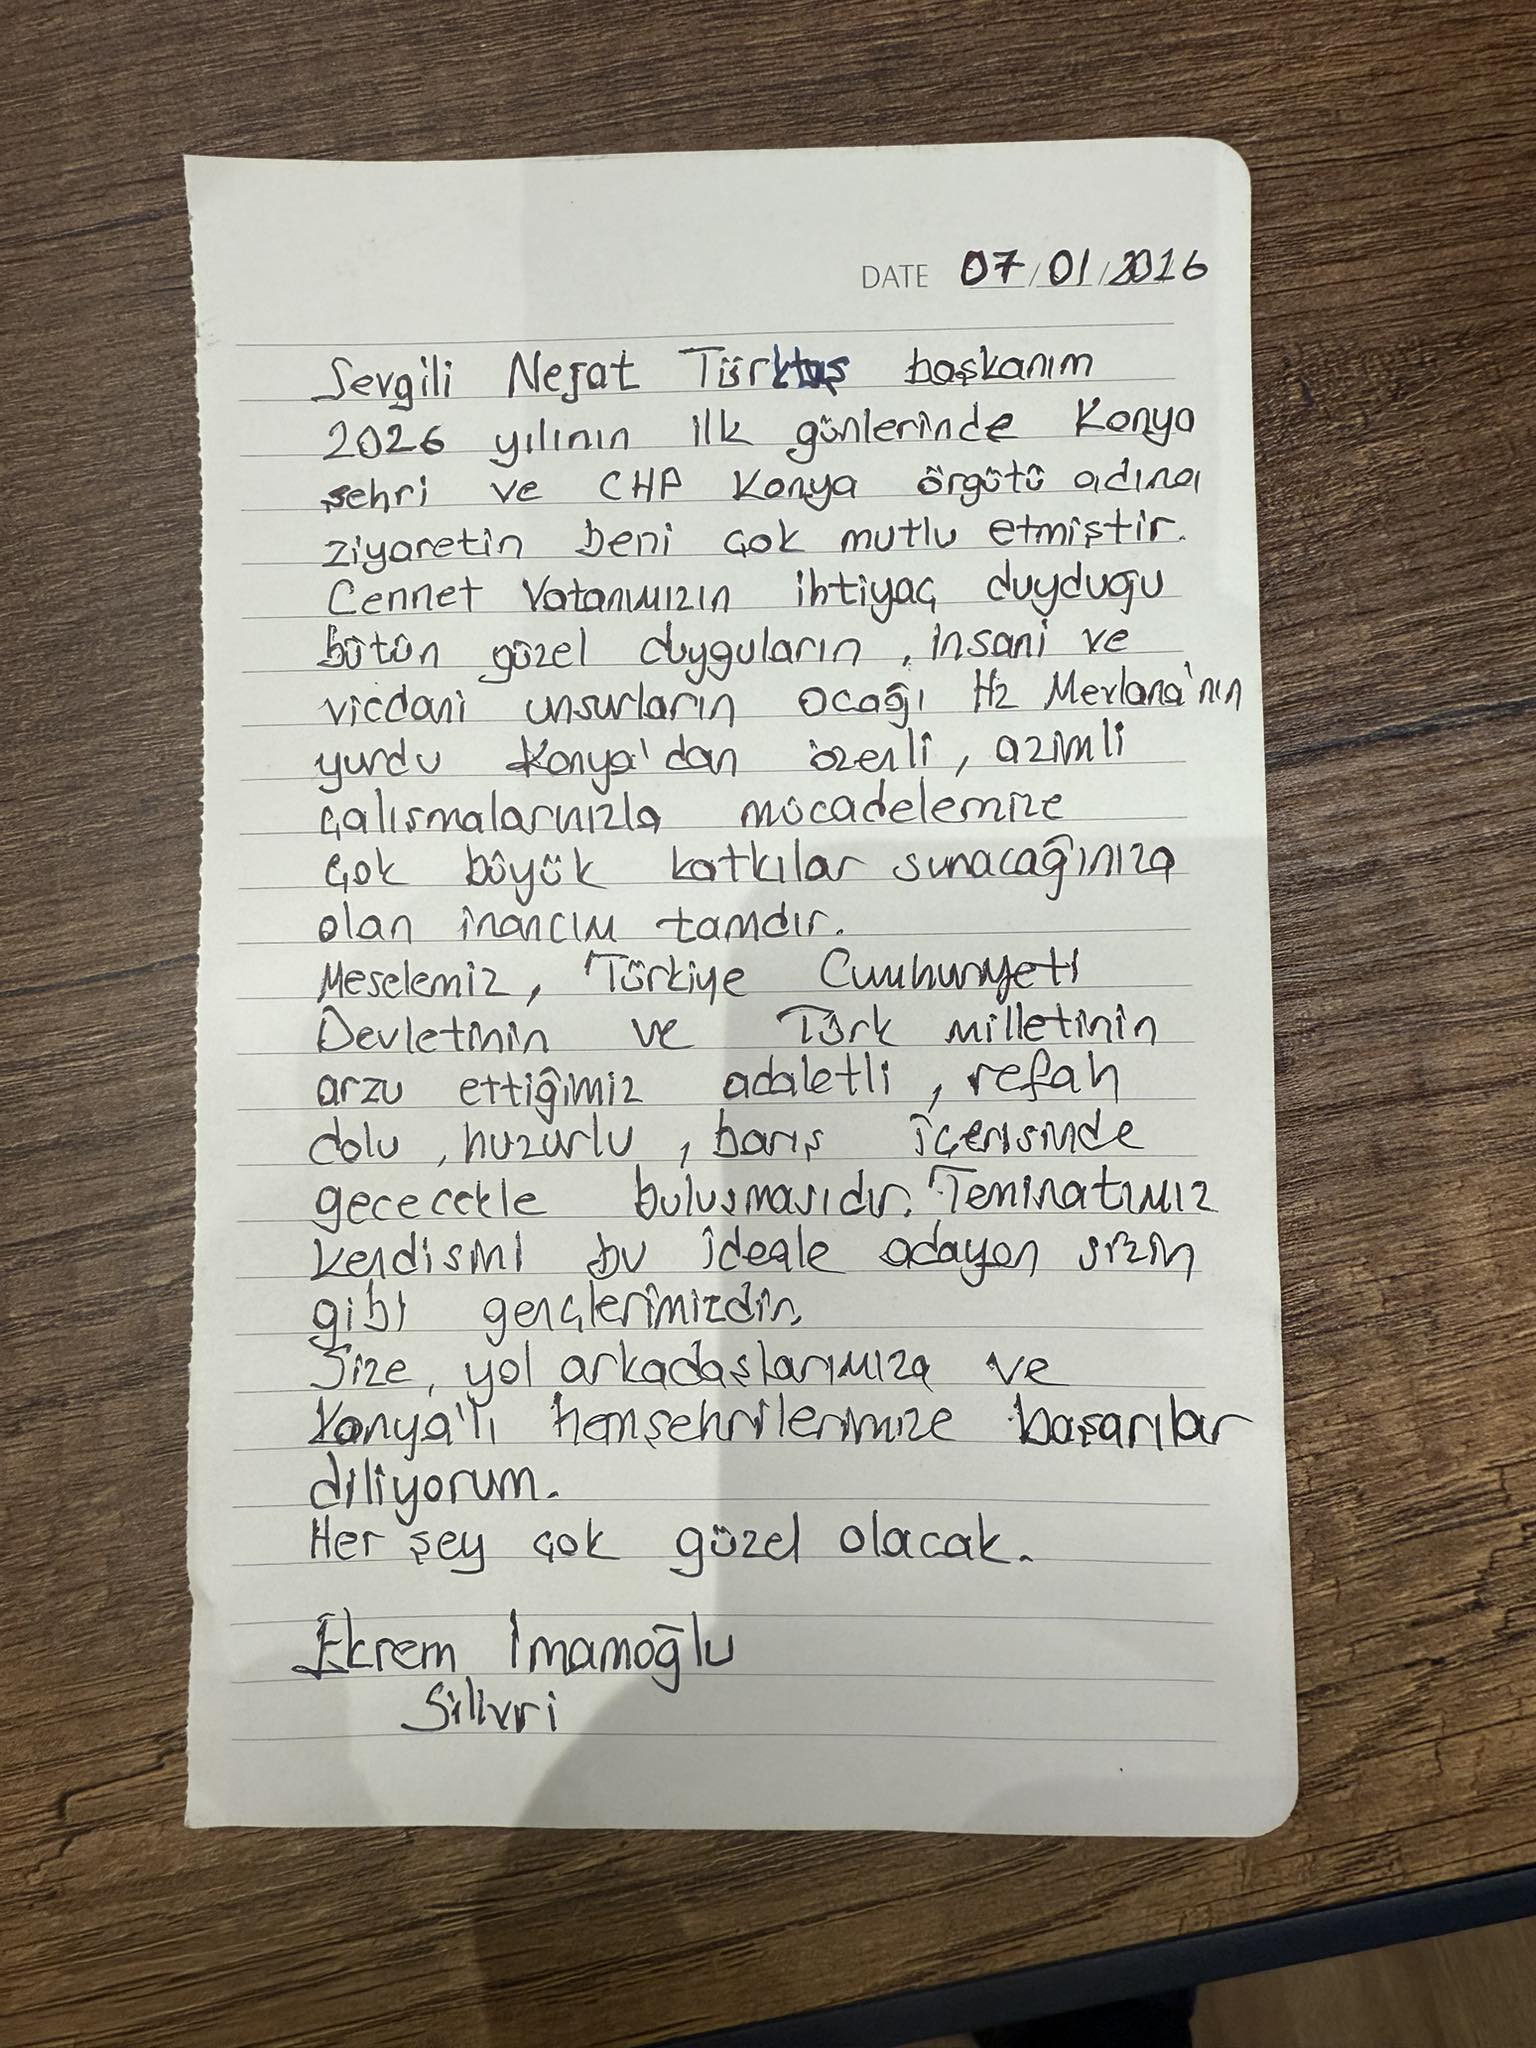 DATE 07/01/2026
Sevgili Nejat Türktaş başkanım
2026 yılının ilk günlerinde Konya
şehri ve CHP Konya örgütü adına
ziyaretin beni çok mutlu etmiştir.
Cennet Vatanımızın ihtiyaç duyduğu
bütün güzel duyguların, insani ve
vicdani unsurların ocağı Hz Mevlana'nın
yurdu Konya'dan özenli, azimli
çalışmalarınızla mücadelemize
çok büyük katkılar sunacağınıza
olan inancım tamdır.
Meselemiz, Türkiye Cumhuriyeti
Devletinin ve Türk milletinin
arzu ettiğimiz adaletli, refah
dolu, huzurlu, barış içerisinde
gelecekle buluşmasıdır. Teminatımız
kendisini bu ideale adayan sizin
gibi gençlerimizdir.
Size, yol arkadaşlarımıza ve
Konya'lı hemşehrilerimize başarılar
diliyorum.
Her şey çok güzel olacak.
Ekrem İmamoğlu
Silivri